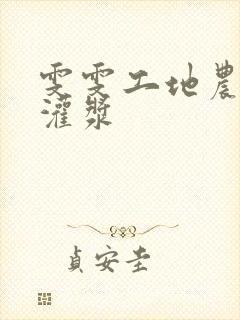 雯雯工地農
灌漿
貞安圭